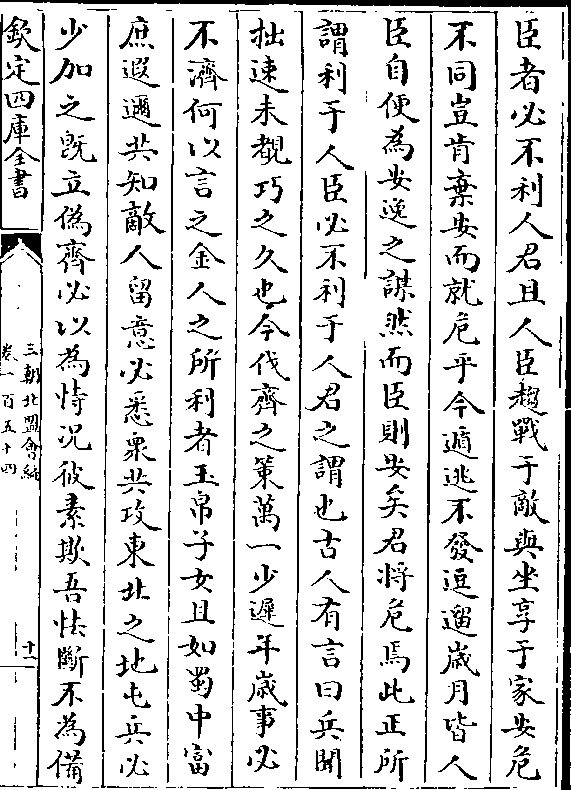 臣者必不利人君且人臣趨戰于敵與坐享于家安危
不同豈肯棄安而就危乎今遁逃不發逗遛歲月皆人
臣自便為安逸之謀然而臣則安矣君將危焉此正所
謂利于人臣必不利于人君之謂也古人有言曰兵聞
拙速未覩巧之久也今伐齊之策萬一少遲年歲事必
不濟何以言之金人之所利者玉帛子女且如蜀中富
庶遐邇共知敵人留意必悉衆共攻東北之地屯兵必
少加之既立偽齊必以為恃況彼素欺吾怯斷不為備
欽定四庫全書
三朝北盟會編
卷一百五十四
十一